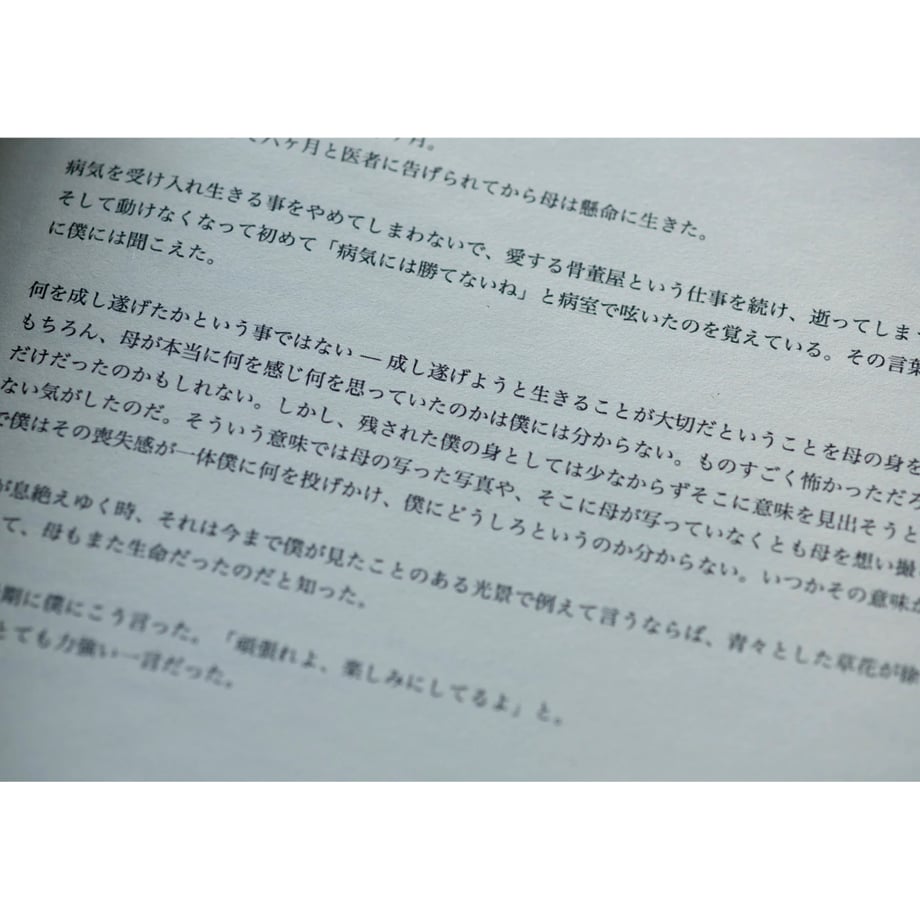 六ヶ月と医者に告げられてから母は懸命に生きた。
病気を受け入れ生きる事をやめてしまわないで、愛する骨董屋という仕事を続け、逝ってしま
そして動けなくなって初めて「病気には勝てないね」と病室で呟いたのを覚えている。その言葉
に僕には聞こえた。
何を成し遂げたかという事ではない ― 成し遂げようと生きることが大切だということを母の身を
もちろん、母が本当に何を感じ何を思っていたのかは僕には分からない。ものすごく怖かっただろ
だけだったのかもしれない。しかし、残された僕の身としては少なからずそこに意味を見出そうと
ない気がしたのだ。そういう意味では母の写った写真や、そこに母が写っていなくとも母を想い撮
で僕はその喪失感が一体僕に何を投げかけ、僕にどうしろというのか分からない。いつかその意味が
が息絶えゆく時、それは今まで僕が見たことのある光景で例えて言うならば、青々とした草花が
て、母もまた生命だったのだと知った。
期に僕にこう言った。「頑張れよ、楽しみにしてるよ」と。
とても力強い一言だった。